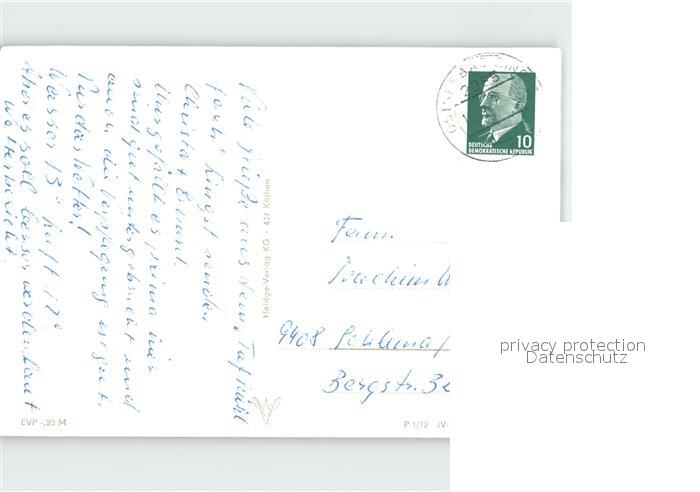 Viele Grüße aus dem
senden
Christa +
Uns gefällt es prima wir
sind gut untergebracht und
auch die Verpflegung ist gut.
Nur das Wetter!
Wasser 13° Luft 12°
Aber es soll besser werden laut
Wetterbericht
Heldge-Verlag KG · 437 Köthen
OSTSEEBAD
10
DEUTSCHE
DEMOKRATISCHE REPUBLIK
Fam.
Joachim
9408 Schlema/
Bergstr.
EVP -,20 M
P 1/72 IV
privacy protection
Datenschutz